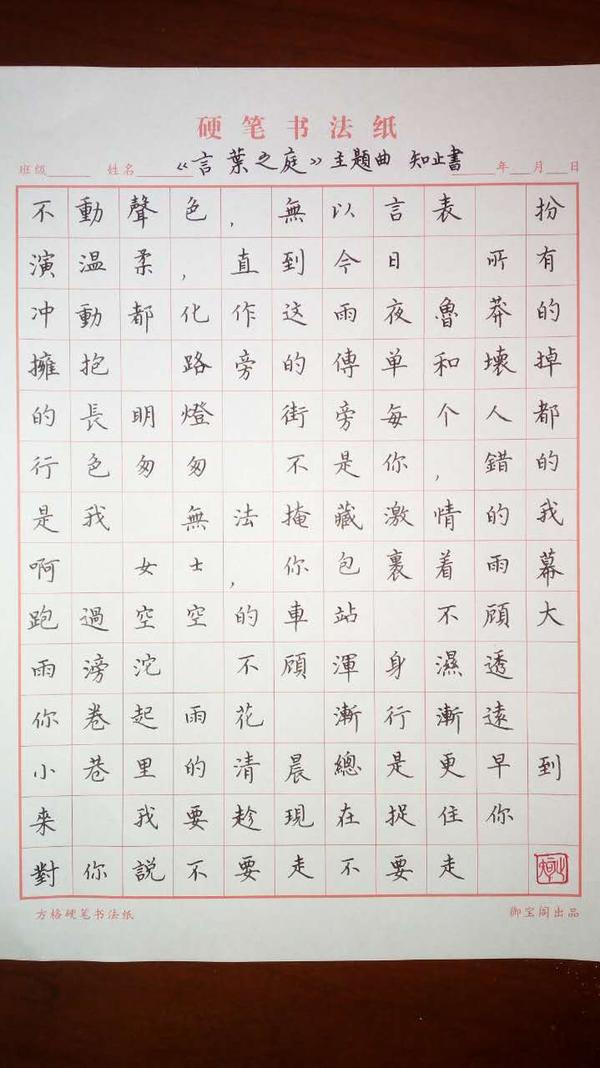 硬笔书法纸
班级 姓名 《言葉之庭》主题曲 知止書 年 月 日
不動聲色，無以言表 扮
演温柔，直到今日 所有
冲動都化作这雨夜魯莽的
擁抱 路旁的傳单和壞掉
的長明燈 街旁每个人都
行色匆匆 不是你，錯的
是我 無法掩藏激情的我
啊 女士，你包裹着雨幕
跑過空空的車站 不顧大
雨滂沱 不顧渾身濕透
你卷起雨花 漸行漸遠
小巷里的清晨總是更早到
来 我要趁現在捉住你
對你説不要走不要走
方格硬笔书法纸 御宝阁出品